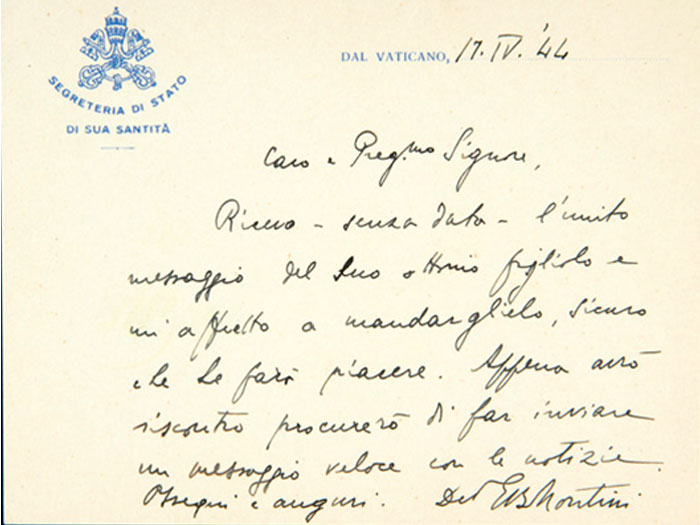 SEGRETERIA DI STATO
DI SUA SANTITÀ
DAL VATICANO, 17. IV. '44
Caro e Preg.mo Signore,
Ricevo - senza data - l'unito
messaggio del Suo ottimo figliolo e
mi affretto a mandarglielo, sicuro
che Le farà piacere. Appena avrò
riscontro procurerò di far inviare
un messaggio veloce con le notizie.
Ossequi e auguri. Dev GBMontini